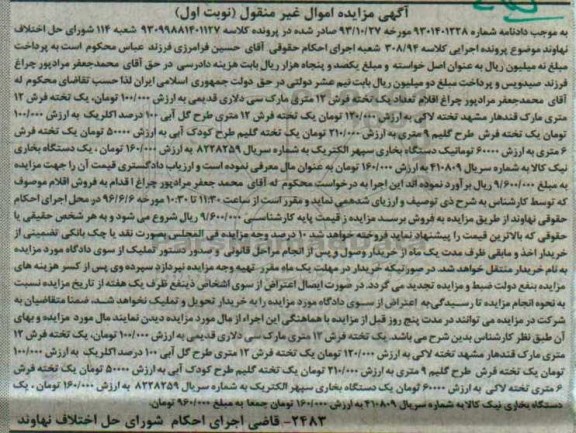 آگهی مزایده اموال غیر منقول (نوبت اول)
به موجب دادنامه شماره ۹۳۰۱۴۰۱۲۲۸ مورخه ۹۳/۱۰/۲۷ صادر شده در پرونده کلاسه ۹۳۰۹۹۸۸۱۴۰۱۱۲۷ شعبه ۱۱۴ شورای حل اختلاف
نهاوند موضوع پرونده اجرایی کلاسه ۳۰۸/۹۴ شعبه اجرای احکام حقوقی آقای حسین فرامرزی فرزند عباس محکوم است به پرداخت
مبلغ نه میلیون ریال به عنوان اصل خواسته و مبلغ یکصد و پنجاه هزار ریال بابت هزینه دادرسی در حق آقای محمدجعفر مرادپور چراغ
فرزند سیدویس و پرداخت مبلغ دو میلیون ریال بابت نیم عشر دولتی در حق دولت جمهوری اسلامی ایران لذا حسب تقاضای محکوم له
آقای محمدجعفر مرادپور چراغ اقلام تعداد یک تخته فرش ۱۲ متری مارک سی دلاری قدیمی به ارزش ۱۰۰/۰۰۰ تومان، یک تخته فرش ۱۲
متری مارک قندهار مشهد تخته لاکی به ارزش ۱۲۰/۰۰۰ تومان یک تخته فرش ۱۲ متری طرح گل آبی ۱۰۰ درصد اکلریک به ارزش ۱۰۰/۰۰۰
تومان یک تخته فرش طرح گلیم ۹ متری به ارزش ۲۱۰/۰۰۰ تومان یک تخته گلیم طرح کودک آبی به ارزش ۵۰۰۰۰ تومان یک تخته فرش
۶ متری به ارزش ۶۰۰۰۰ تومانیک دستگاه بخاری سپهر الکتریک به شماره سریال ۸۲۲۸۲۵۹ به ارزش ۱۶۰/۰۰۰ تومان ، یک دستگاه بخاری
نیک کالا به شماره سریال ۴۱۰۸۰۹ به ارزش ۱۶۰/۰۰۰ تومان به عنوان مال معرفی نموده است و ارزیاب دادگستری قیمت آن را جهت مزایده
به مبلغ ۹/۶۰۰/۰۰۰ ریال برآورد نموده اند این اجرا به درخواست محکوم له آقای محمد جعفر مرادپور چراغ اقدام به فروش اقلام موصوف
که توسط کارشناس به شرح ذی توصیف و ارزیابی شدهمی نماید و مقرر است از ساعت ۱۱:۳۰ تا ۱۰:۳۰ مورخه ۹۶/۶/۶ در محل اجرای احکام
حقوقی نهاوند از طریق مزایده به فروش برسد مزایده ز قیمت پایه کارشناسی ۹/۶۰۰/۰۰۰ ریال شروع می شود و به هر شخص حقیقی یا
حقوقی که بالاترین قیمت را پیشنهاد نماید فروخته خواهد شد ۱۰ درصد وجه مزایده فی المجلس بصورت نقد یا چک بانکی تضمینی از
خریدار اخذ و مابقی ظرف مدت یک ماه از خریدار وصول و پس از انجام مراحل قانونی و صدور دستور تملیک از سوی دادگاه مورد مزایده
به نام خریدار منتقل خواهد شد. در صورتیکه خریدار در مهلت یک ماه مقرر تهیه وجه مزایده نپردازد سپرده وی پس از کسر هزینه های
مزایده بنفع دولت ضبط و مزایده تجدید می گردد. در صورت ایصال اعتراض از سوی اشخاص ذینفع ظرف یک هفته از تاریخ مزایده نسبت
به نحوه انجام مزایده تا رسیدگی به اعتراض از سوی دادگاه مورد مزایده را به خریدار تحویل و تملیک نخواهد شد، ضمنا متقاضیان به
شرکت در مزایده می توانند در مدت پنج روز قبل از مزایده با هماهنگی این اجراء از مال مورد مزایده دیدن نمایند مال مورد مزایده و بهای
آن طبق نظر کارشناس بدین شرح می باشد. یک تخته فرش ۱۲ متری مارک سی دلاری قدیمی به ارزش ۱۰۰/۰۰۰ تومان، یک تخته فرش ۱۲
متری مارک قندهار مشهد تخته لاکی به ارزش ۱۲۰/۰۰۰ تومان یک تخته فرش ۱۲ متری طرح گل آبی ۱۰۰ درصد اکلریک به ارزش ۱۰۰/۰۰۰
تومان یک تخته فرش طرح گلیم ۹ متری به ارزش ۲۱۰/۰۰۰ تومان یک تخته گلیم طرح کودک آبی به ارزش ۵۰۰۰۰ تومان یک تخته فرش
۶ متری تخته لاکی به ارزش ۶۰۰۰۰ تومان یک دستگاه بخاری سپهر الکتریک به شماره سریال ۸۲۲۸۲۵۹ به ارزش ۱۶۰/۰۰۰ تومان ، یک
دستگاه بخاری نیک کالا به شماره سریال ۴۱۰۸۰۹ به ارزش ۱۶۰/۰۰۰ تومان جمعا به مبلغ ۹۶۰/۰۰۰ تومان.
۲۴۸۳- قاضی اجرای احکام شورای حل اختلاف نهاوند